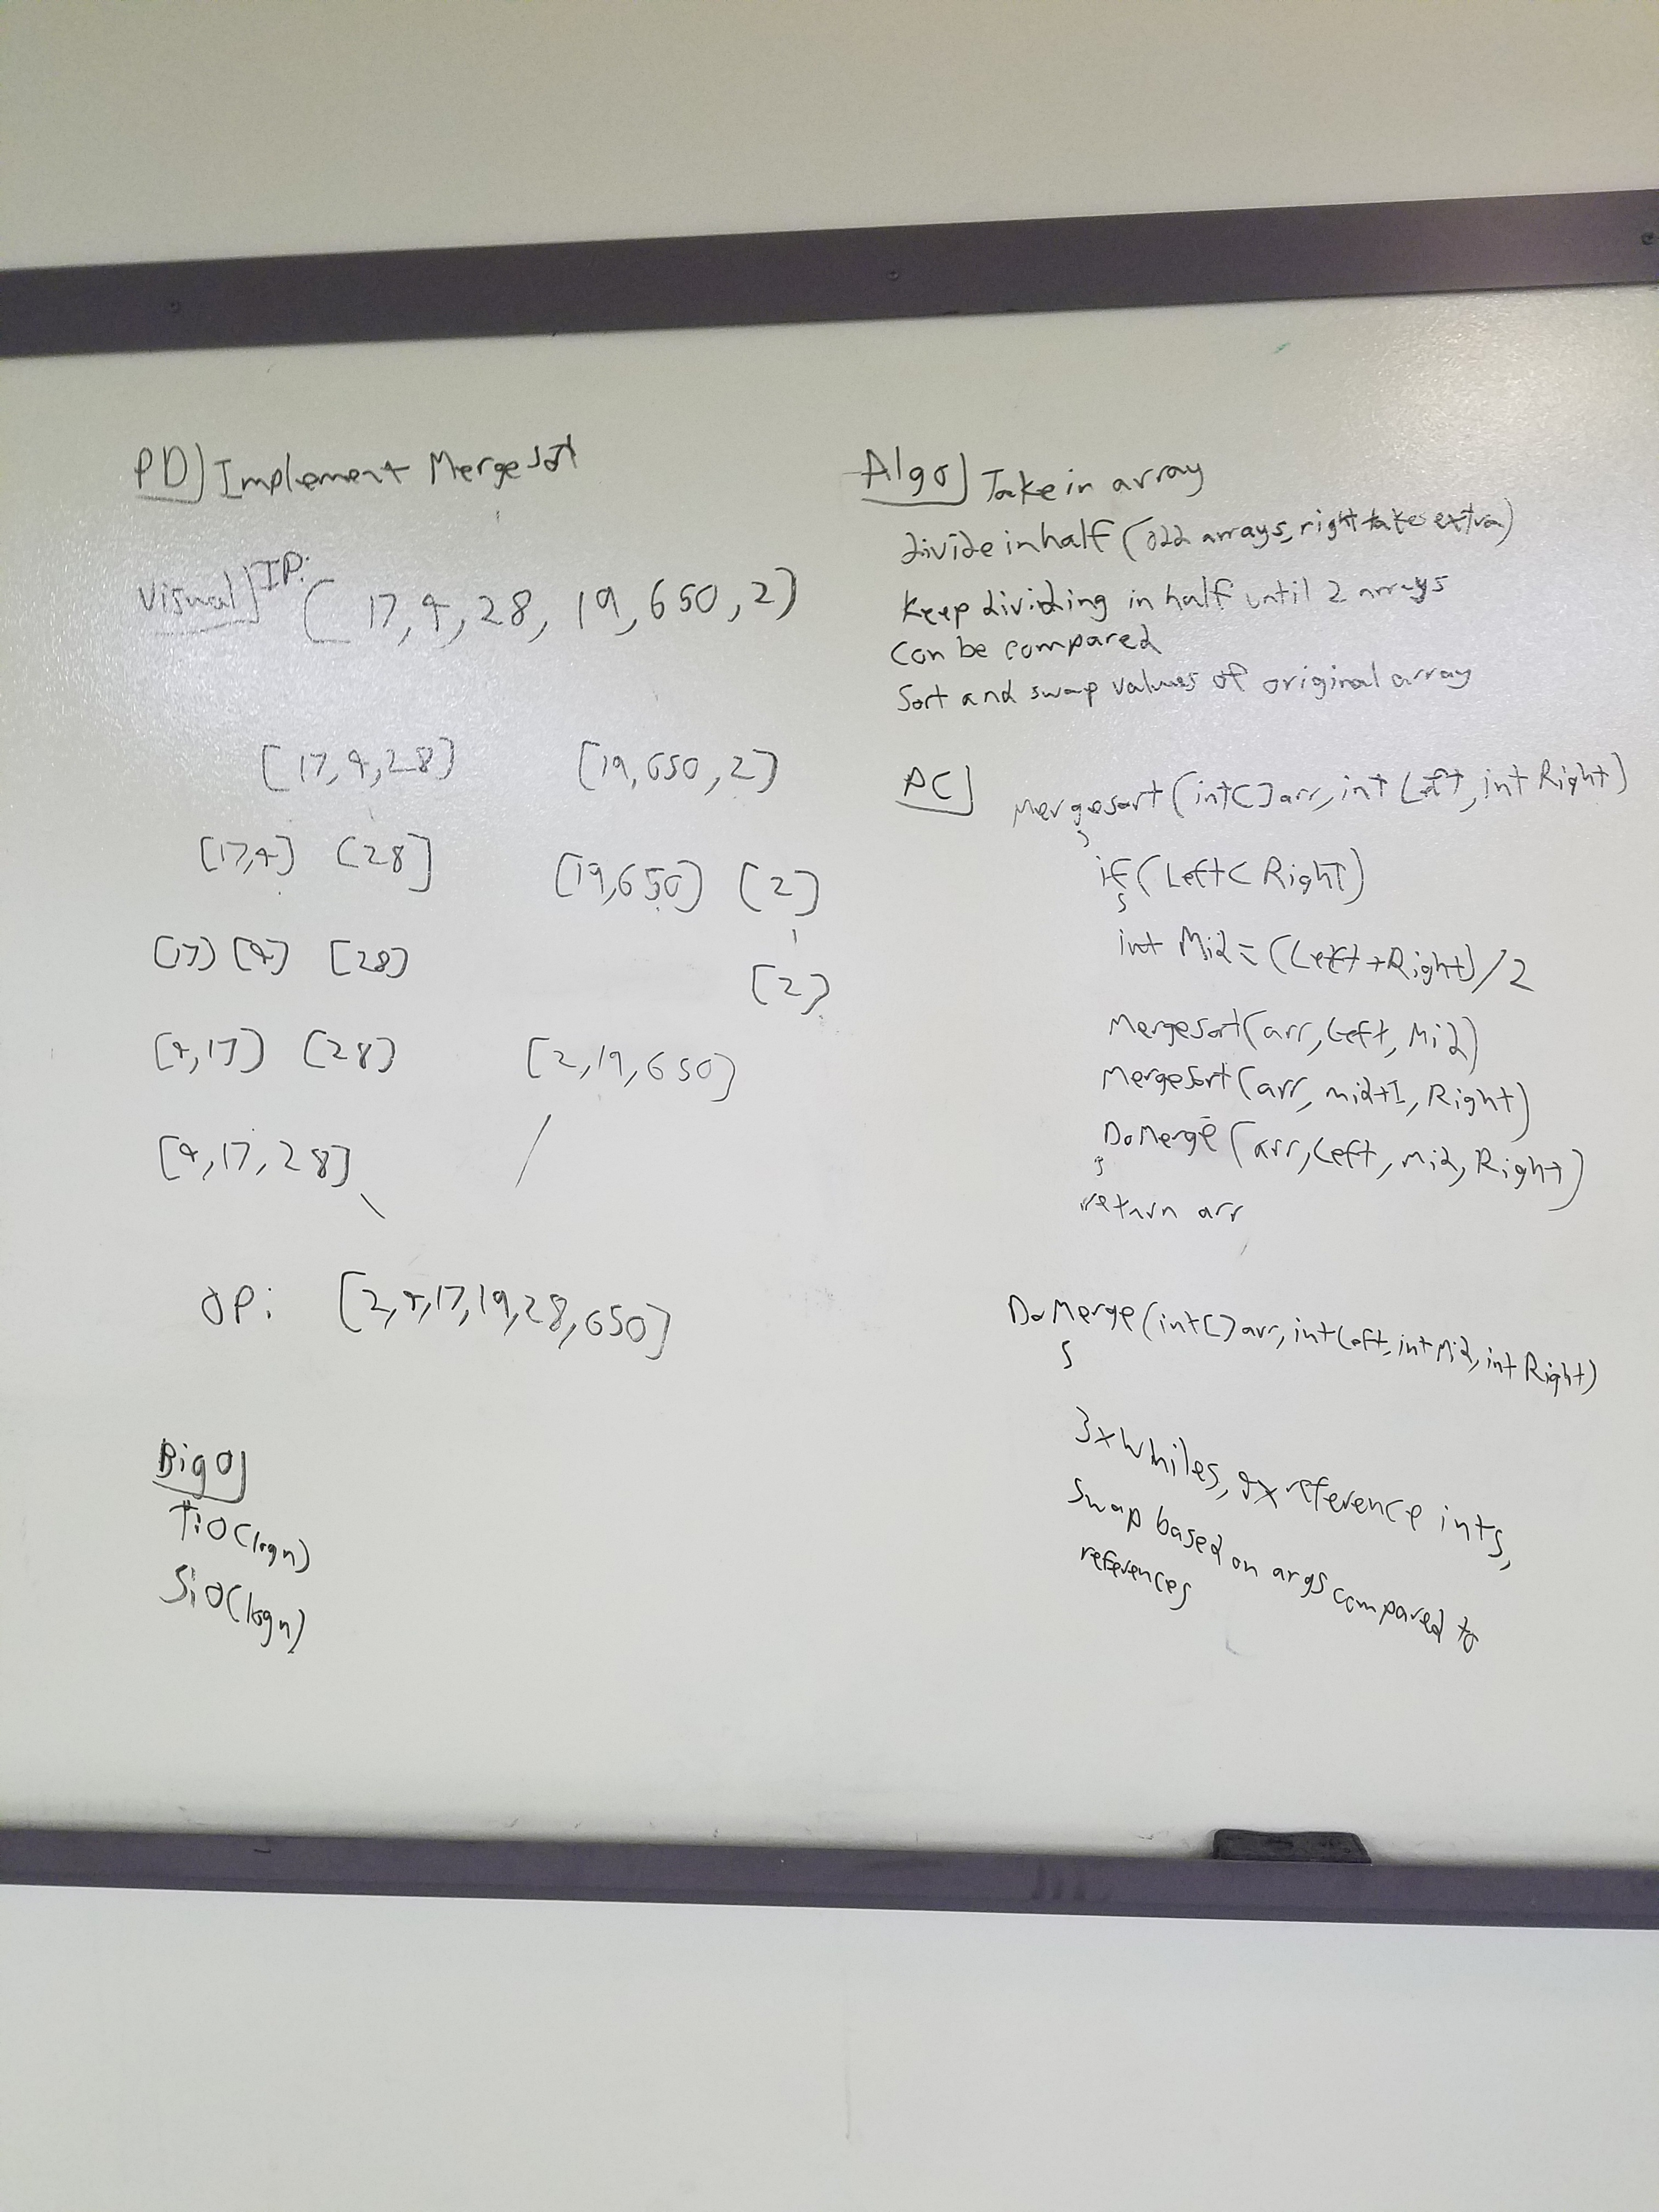 PD] Implement Merge Sort
Visual] IP:
[17,4,28, 19,650,2]
[17,4,28] [19,650,2]
[17,4] [28] [19,650] [2]
[17] [4] [28] [2]
[4,17] [28] [2,19,650]
[4,17,28]
OP: [2,4,17,19,28,650]
Big O]
T:O(logn)
S:O(logn)
Algo] Take in array
divide in half (odd arrays, right takes extra)
Keep dividing in half until 2 arrays
can be compared
Sort and swap values of original array
PC] Mergesort(int[] arr, int Left, int Right)
{
if(Left < Right)
{
int Mid = (Left + Right)/2
Mergesort(arr, Left, Mid)
MergeSort(arr, mid+1, Right)
DoMerge(arr, Left, mid, Right)
}
return arr
DoMerge(int[] arr, int Left, int Mid, int Right)
{
3x Whiles, reference ints,
Swap based on args compared to
references